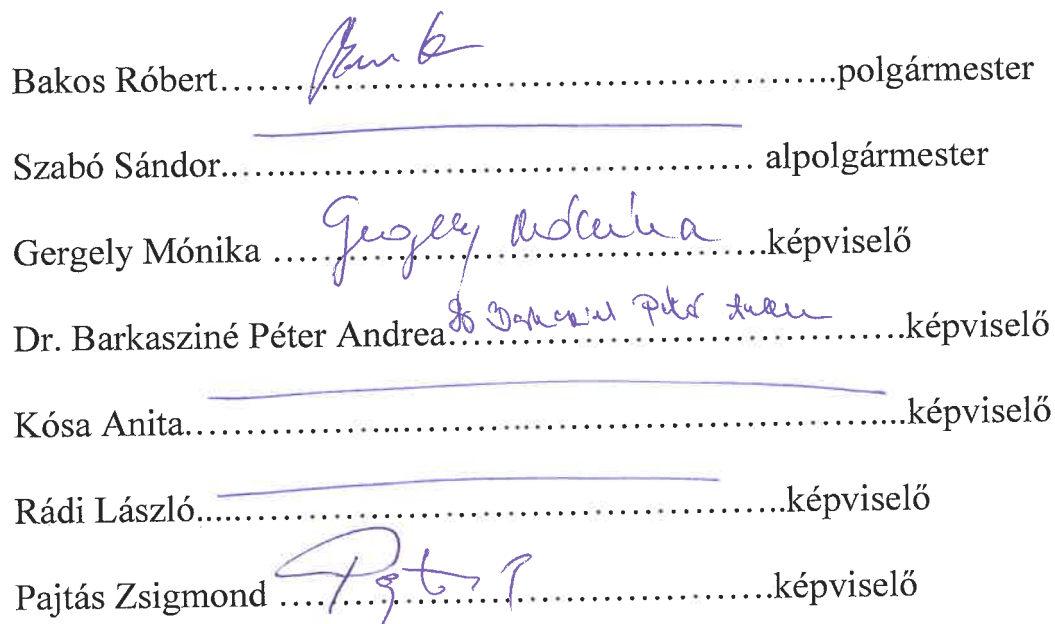 Bakos Róbert................................................polgármester
Szabó Sándor................................................ alpolgármester
Gergely Mónika ....Gergely Mónika....képviselő
Dr. Barkasziné Péter Andrea....Dr Barkasziné Péter Andrea....képviselő
Kósa Anita................................................képviselő
Rádi László................................................képviselő
Pajtás Zsigmond ................................................képviselő